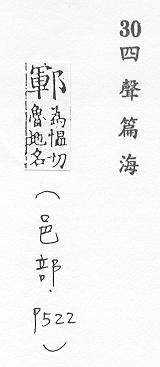 30四聲篇海
鄆
為愠切
魯地名
（邑部.p522）